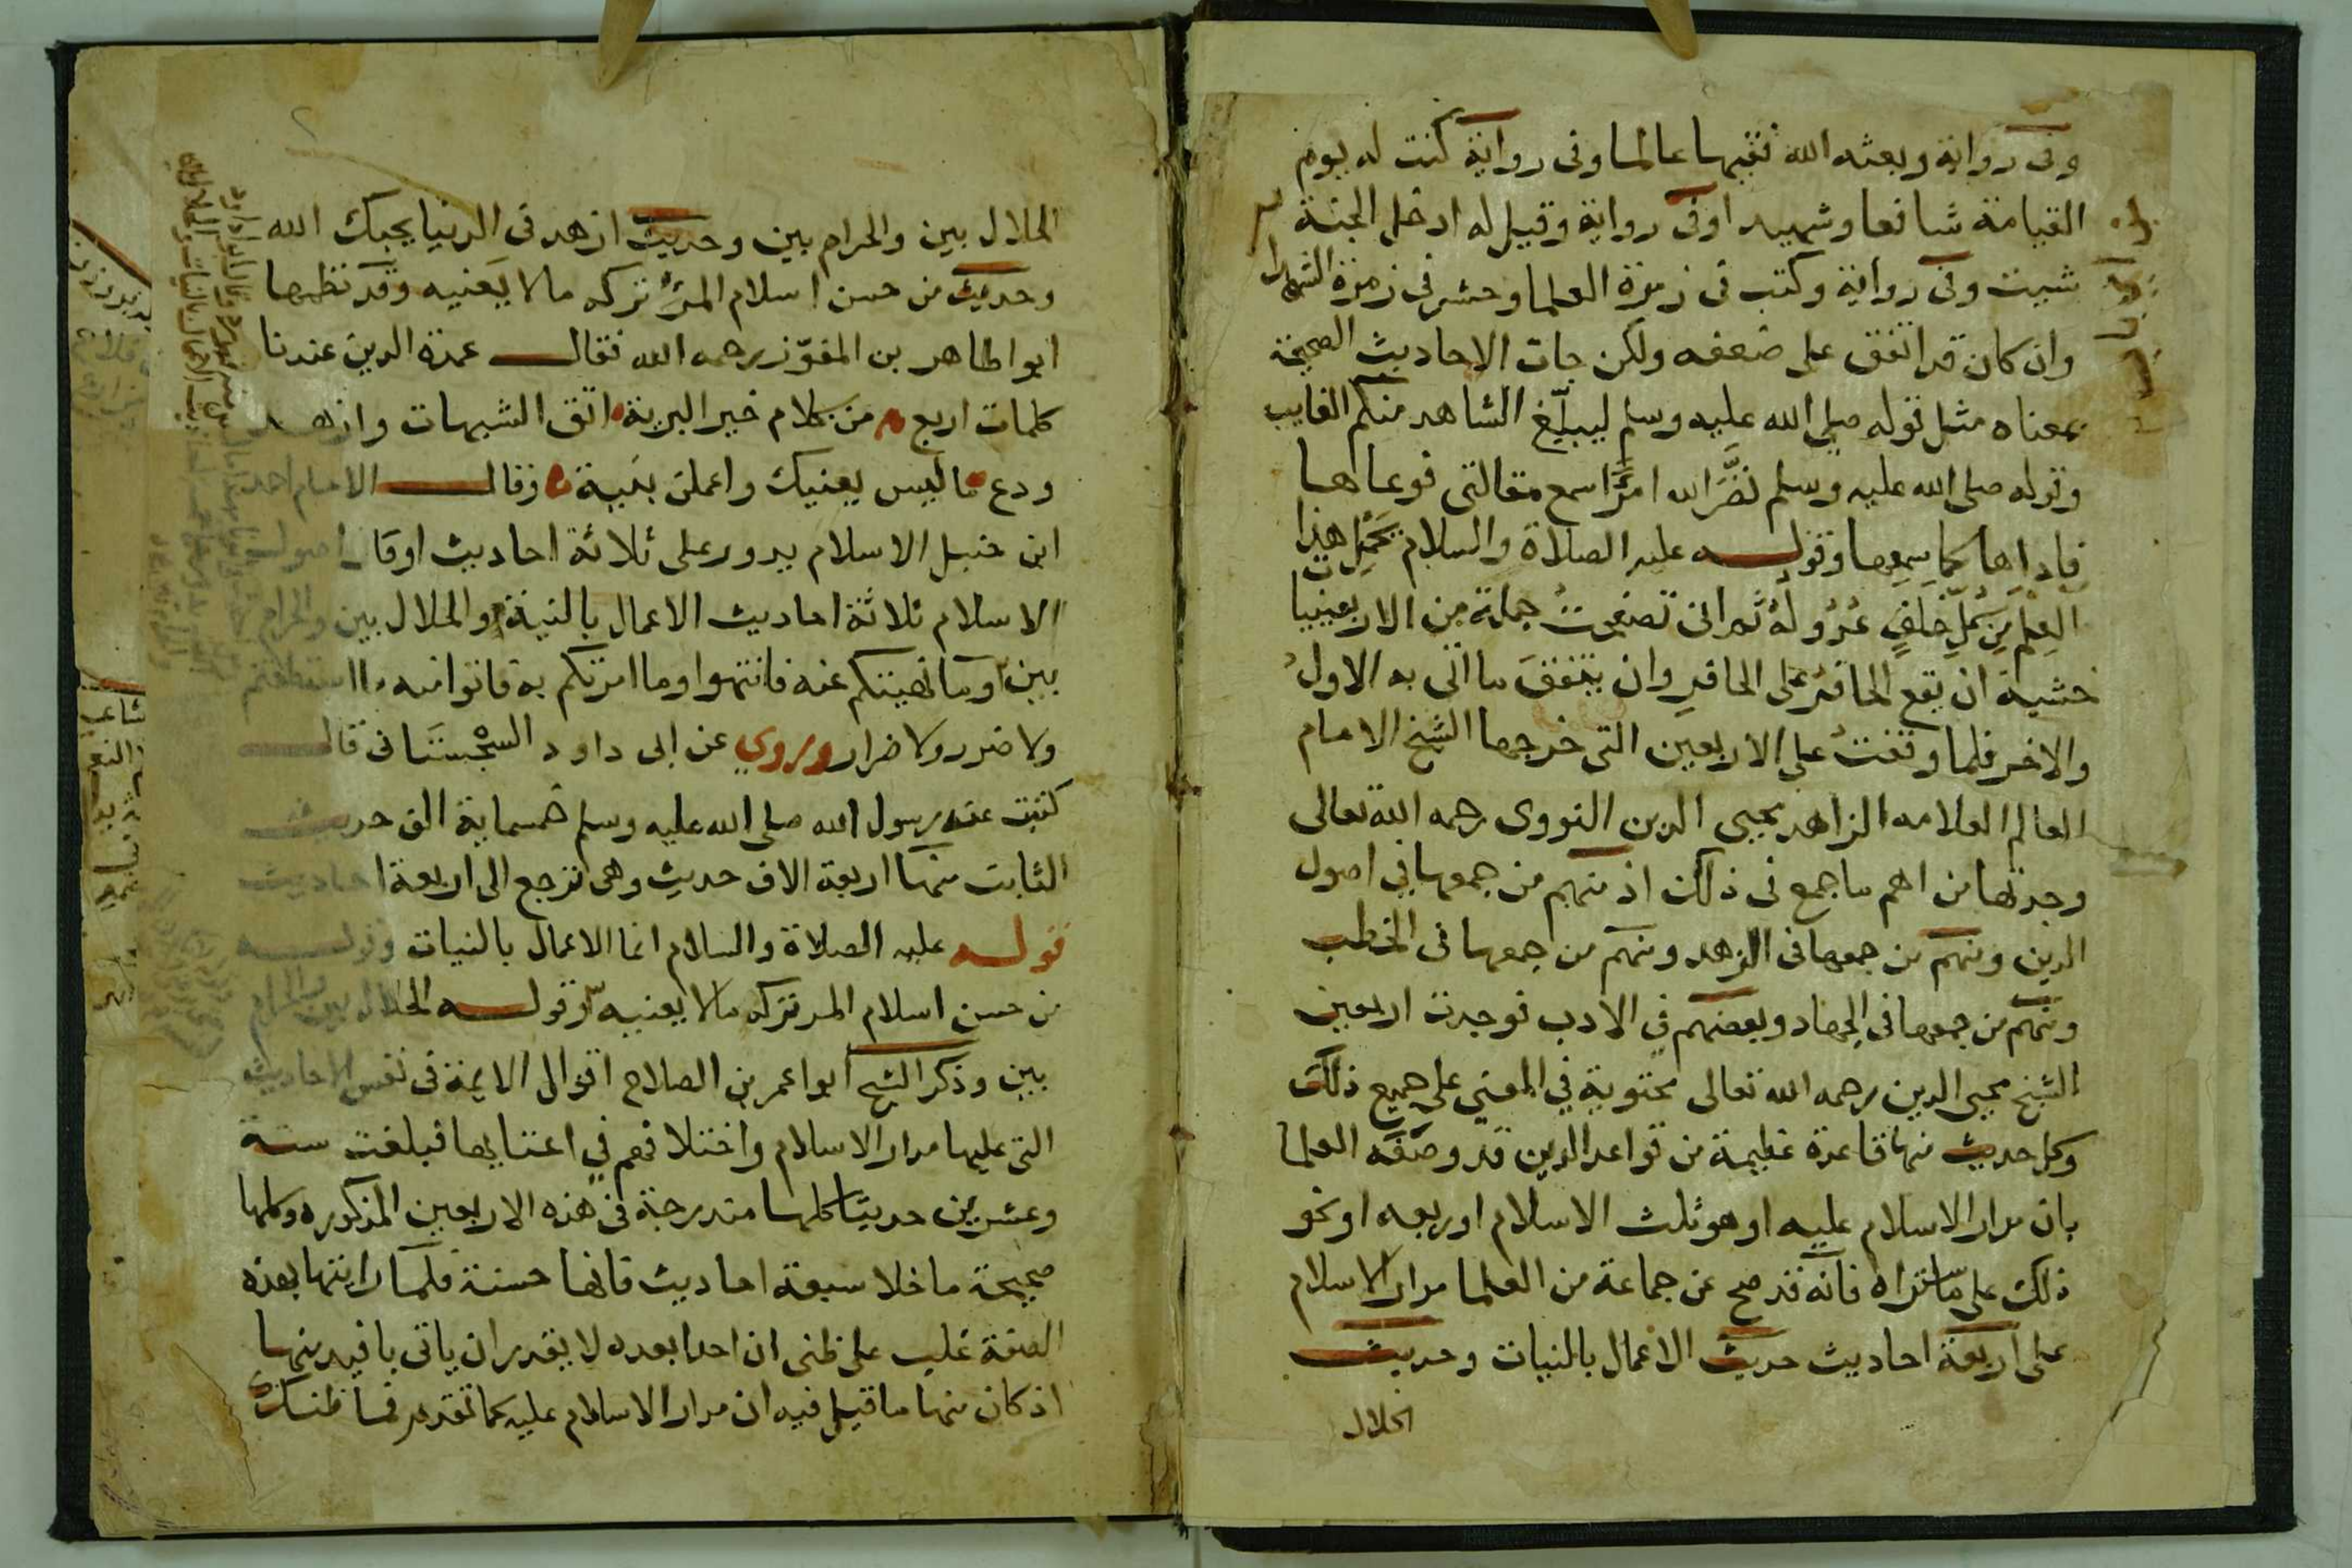 وفى رواية وبعثه الله فقيها عالما وفى رواية كنت له يوم
القيامة شافعا وشهيدا وفى رواية وقيل له ادخل الجنة
شيت وفى رواية وكتب فى زمرة العلما وحشر فى زمرة الشهدا
وان كان قد اتفق على ضعفه ولكن جات الاحاديث الصحيحة
بمعناه مثل قوله صلى الله عليه وسلم ليبلّغ الشاهد منكم الغايب
وقوله صلى الله عليه وسلم نضَّرَ الله امرًا سمع مقالتى فوعاها
فاداها كما سمعها وقوله عليه الصلاة والسلام يَحْمِل هذا
العِلْمَ مِن كُلّ خَلَفٍ عُدُولُهُ ثم انى تصفحتُ جملة من الاربعينيات
خشية ان يقع الحافرُ على الحافرِ وان يتفقَ ما اتى به الاولُ
والاخر فلما وقفتُ على الاربعين التى خرجها الشيخ الامام
العالم العلامه الزاهد يحيى الدين النووى رحمه الله تعالى
وجدتها من اهم ما جمع فى ذلك اذ منهم من جمعها في اصول
الدين ومنهم من جمعها فى الزهد ومنهم من جمعها فى الخطب
ومنهم من جمعها فى الجهاد وبعضهم في الادب فوجدت اربعين
الشيخ محيى الدين رحمه الله تعالى محتوية في المعنى على جميع ذلك
وكل حديث منها قاعدة عظيمة من قواعد الدين قد وصَفَه العلما
بان مدار الاسلام عليه او هو ثلث الاسلام او ربعه او نحو
ذلك على ما ستراه فانه قد صح عن جماعة من العلما مدار الاسلام
على اربعة احاديث حديث الاعمال بالنيات وحديث
الحلال
الحلال بين والحرام بين وحديث ازهد فى الدنيا يحبك الله
وحديث من حسن اسلام المرْءِ تركه مالا يَعنيه وقد نظمها
ابوا طاهر بن المفوّز رحمه الله فقال عمدة الدين عندنا
كلمات اربع من كلام خير البرية اتق الشبهات وازهد
ودع ما ليس يعنيك واعملن بنية وقال الامام احمد
ابن حنبل الاسلام يدور على ثلاثة احاديث او قال اصول
الاسلام ثلاثة احاديث الاعمال بالنية والحلال بين والحرام
بين وما نهيتكم عنه فانتهوا وما امرتكم به فاتوا منه ما استطعتم
ولا ضرر ولا ضرار وروي عن ابى داود السجستانى قال
كتبت عن رسول الله صلى الله عليه وسلم خمسماية الف حديث
الثابت منها اربعة الاف حديث وهى ترجع الى اربعة احاديث
قوله عليه الصلاة والسلام انما الاعمال بالنيات وقوله
من حسن اسلام المر تركه مالا يعنيه وقوله الحلال بين والحرام
بين وذكر الشيخ ابوا عمر بن الصلاح اقوال الايمة فى نفس الاحاديث
التى عليها مدار الاسلام واختلافهم في اعتنايها فبلغت ستة
وعشرين حديثا كلها مندرجة فى هذه الاربعين المذكوره وكلها
صحيحة ما خلا سبعة احاديث فانها حسنة فلما رايتها بهذه
الصفة غلب على ظنى ان احدا بعده لا يقدر ان ياتى بافيد منها
اذ كان منها ما قيل فيه ان مدار الاسلام عليه كما تقدم فما ظنك